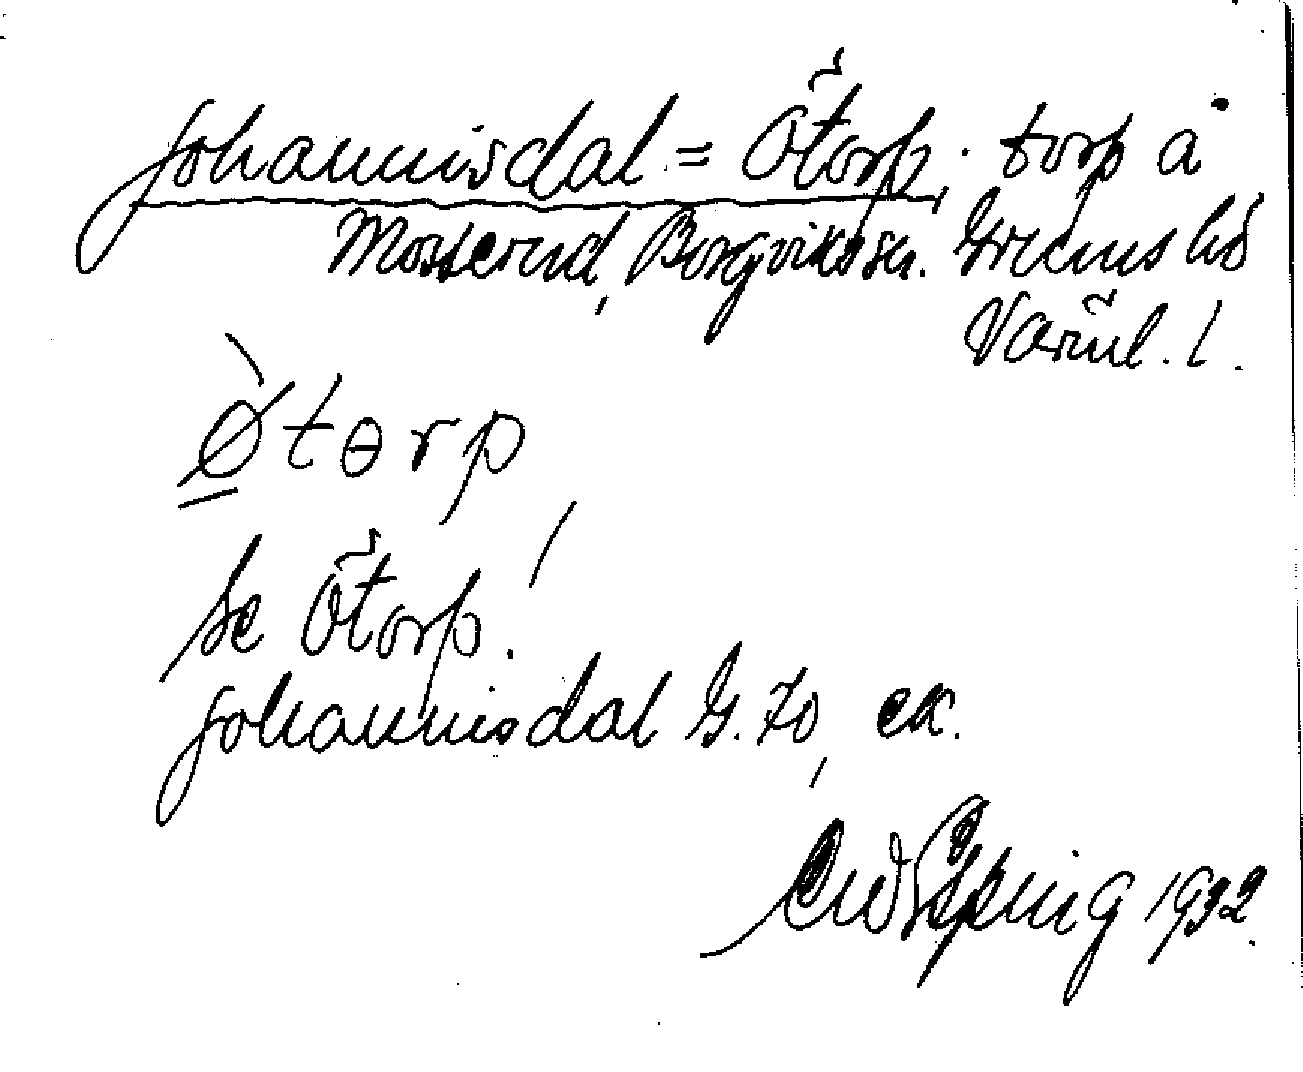 Johannisdal = Ötorp, torp å
Mosserud, Borgviks sn. Grums hd
Värml. l.
Øtɵrp
se Ötorp!
Johannisdal G. 70, ek.
1932.